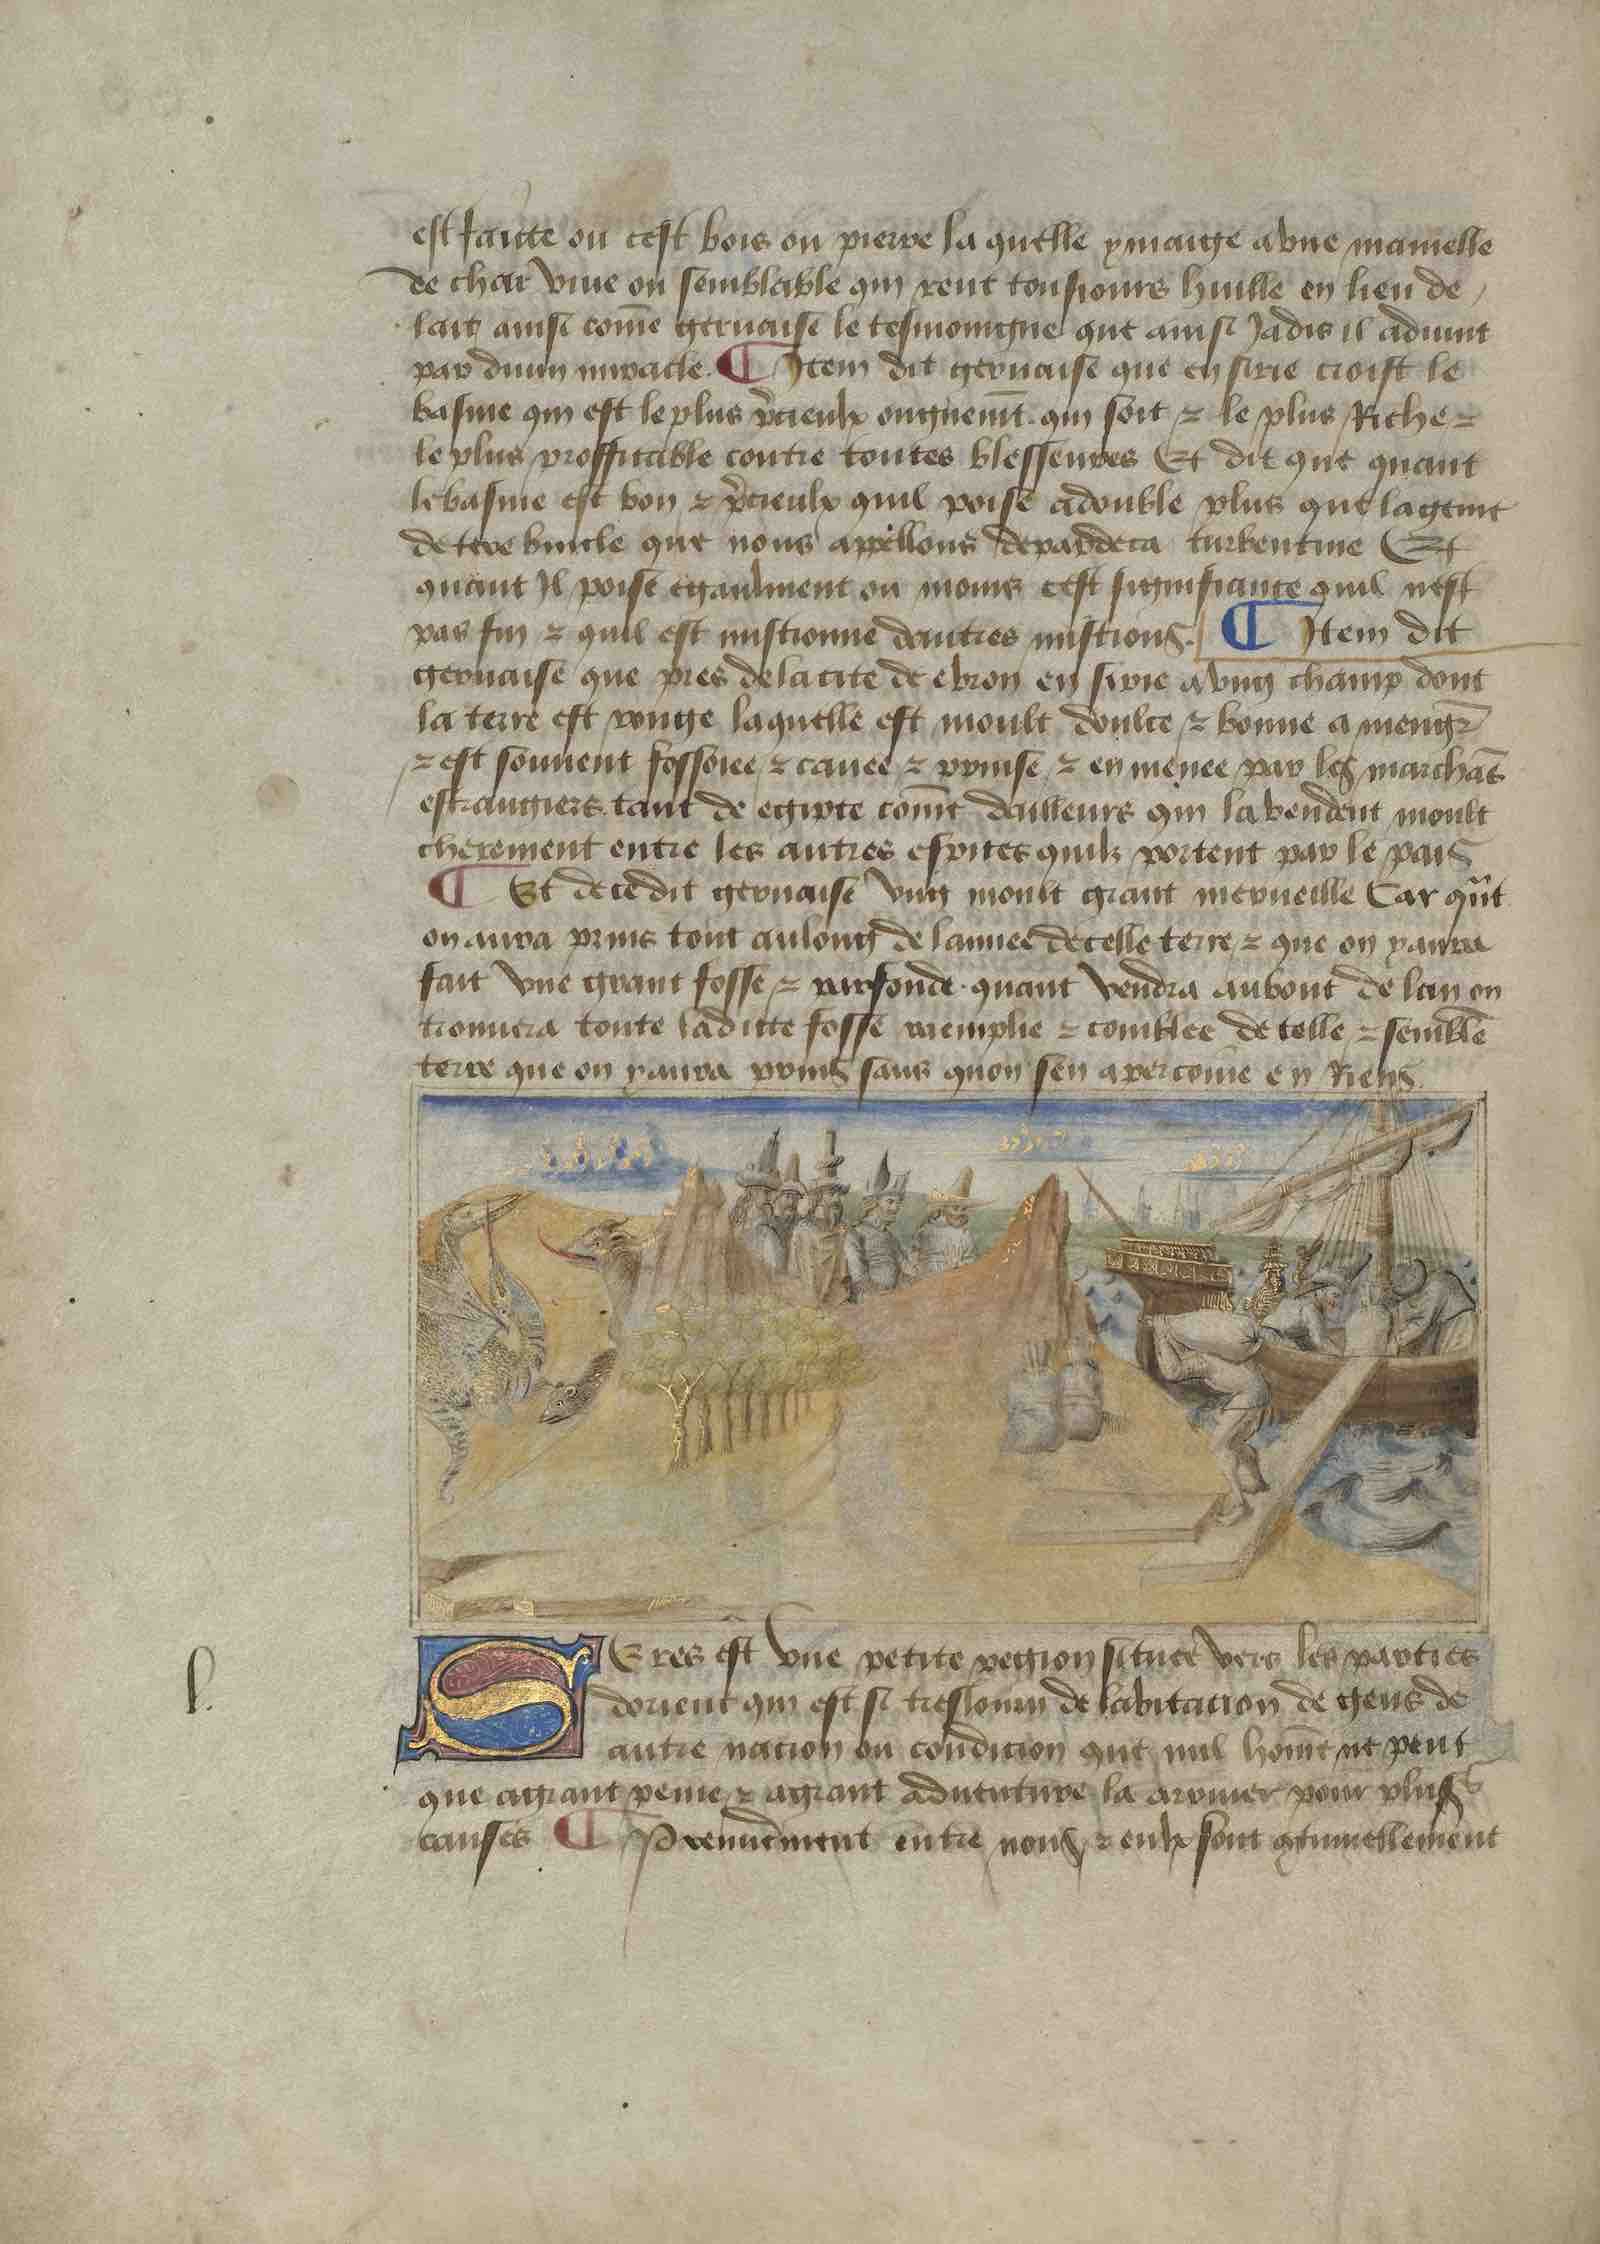 est faicte ou cest bois ou pierre la quelle ymaige a une mamelle
de char vive ou semblable qui rent tousiours huille en lieu de
lait ainsi come gervaise le tesmoingne que ainsi Jadis il advint
par divin miracle. ¶ Item dit gervaise que en sirie croist le
basme qui est le plus p̃cieulx ongnem̃t. qui soit ⁊ le plus Riche ⁊
le plus proffitable contre toutes blesseures Et dit que quant
le basme est bon ⁊ p̃cieulx quil poise a double plus que la geme
de terebincle que nous appellons depardeca turbentine Et
quant Il poise egaulment ou moins cest signifiance quil nest
pas fin ⁊ quil est mistionne dautres mistions. ¶ Item dit
gervaise que pres de la cite de ebron en sirie a ung champ dont
la terre est rouge laquelle est moult doulce ⁊ bonne a meng̃r
⁊ est souvent fossoiee ⁊ cavee ⁊ prinse ⁊ en menee par les marchãs
estrangiers. tant de egipte com̃e dailleurs qui la vendent moult
cherement entre les autres espices quilz portent par le pais
¶ Et de ce dit gervaise ung moult grant merveille Car qũt
on aura prins tout au long de lannee de celle terre ⁊ que on y aura
fait une grant fosse ⁊ parfonde. quant vendra au bout de lan on
trouvera toute la ditte fosse raemplie ⁊ comblee de telle ⁊ semblẽ
terre que on y aura prins sans quon sen apercoive en Riens.
Seres est une petite region situee vers les parties
dorient qui est si tresloing de labitacion de gens de
autre nacion ou condicion que nul hom̃e ne peut
que a grant peine ⁊ a grant adventure la arriver pour plus̃
causes ¶ Premierement entre nous ⁊ eulx sont 9tinuellement
s.